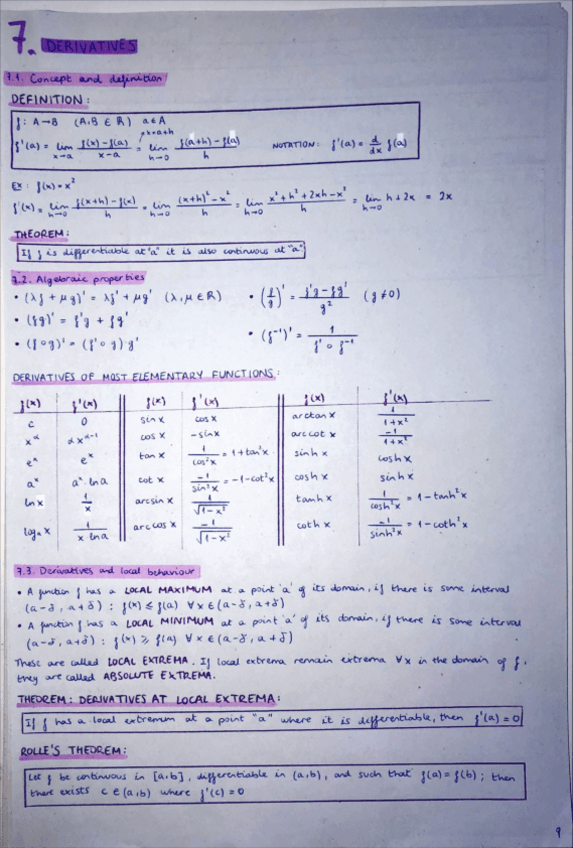 7. DERIVATIVES
7.1. Concept and definition
DEFINITION:
f: A→B (A,B ∈ ℝ) a∈A
x=a+h
f'(a) = lim x→a (f(x)-f(a))/(x-a) = lim h→0 (f(a+h)-f(a))/h NOTATION: f'(a) = d/dx f(a)
Ex: f(x)=x²
f'(x) = lim h→0 (f(x+h)-f(x))/h = lim h→0 ((x+h)²-x²)/h = lim h→0 (x²+h²+2xh-x²)/h = lim h→0 h+2x = 2x
THEOREM:
If f is differentiable at "a" it is also continuous at "a"
7.2. Algebraic properties
• (λf + μg)' = λf' + μg' (λ,μ ∈ ℝ) • (f/g)' = (f'g - fg')/g² (g≠0)
• (fg)' = f'g + fg'
• (f∘g)' = (f'∘g) g' • (f⁻¹)' = 1/(f'∘f⁻¹)
DERIVATIVES OF MOST ELEMENTARY FUNCTIONS:
f(x) f'(x) f(x) f'(x) f(x) f'(x)
c 0 sin x cos x arctan x 1/(1+x²)
x^α αx^(α-1) cos x -sin x arccot x -1/(1+x²)
e^x e^x tan x 1/cos²x = 1+tan²x sinh x cosh x
a^x a^x·ln a cot x -1/sin²x = -1-cot²x cosh x sinh x
ln x 1/x arcsin x 1/√(1-x²) tanh x 1/cosh²x = 1-tanh²x
log_a x 1/(x ln a) arccos x -1/√(1-x²) coth x -1/sinh²x = 1-coth²x
7.3. Derivatives and local behaviour
• A function f has a LOCAL MAXIMUM at a point 'a' of its domain, if there is some interval
(a-δ, a+δ) : f(x) ≤ f(a) ∀x∈(a-δ, a+δ)
• A function f has a LOCAL MINIMUM at a point 'a' of its domain, if there is some interval
(a-δ, a+δ) : f(x) ≥ f(a) ∀x∈(a-δ, a+δ)
These are called LOCAL EXTREMA. If local extrema remain extrema ∀x in the domain of f,
they are called ABSOLUTE EXTREMA.
THEOREM: DERIVATIVES AT LOCAL EXTREMA:
If f has a local extremum at a point "a" where it is differentiable, then f'(a)=0
ROLLE'S THEOREM:
Let f be continuous in [a,b], differentiable in (a,b), and such that f(a)=f(b); then
there exists c∈(a,b) where f'(c)=0
9